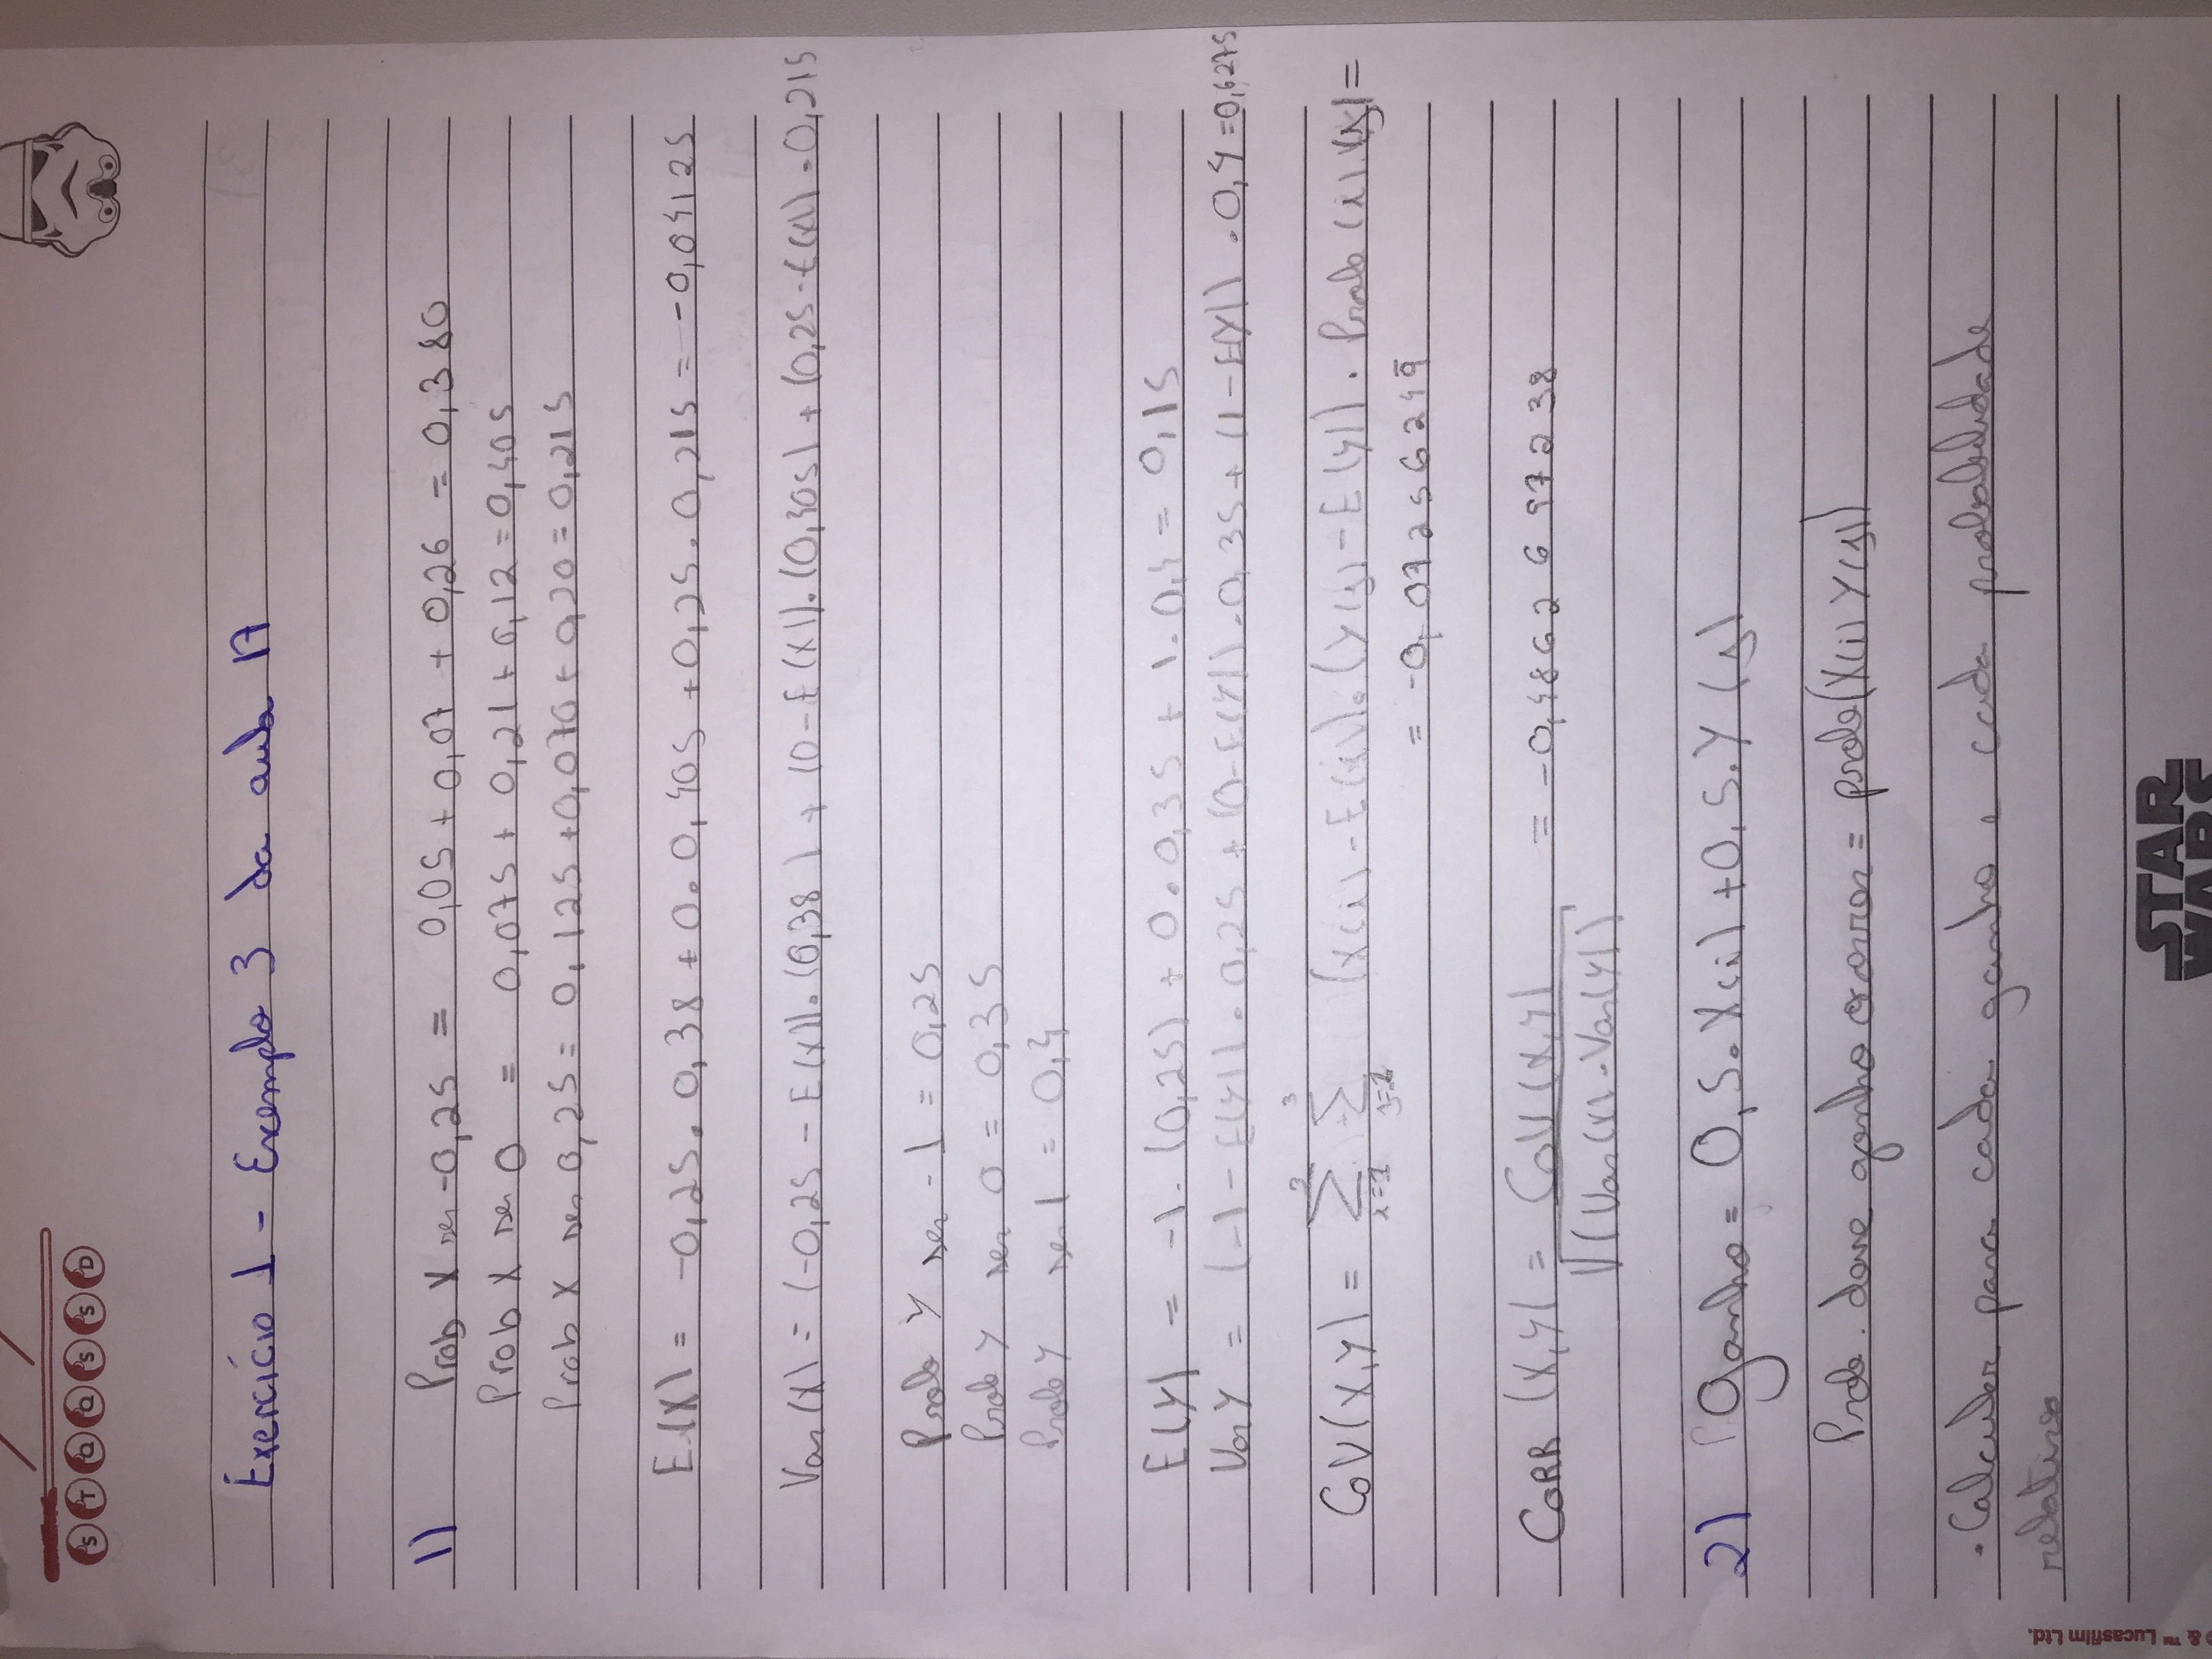 S T Q Q S S D
Exercício 1 - Exemplo 3 da aula 17
1) Prob X ser -0,25 = 0,05 + 0,07 + 0,26 = 0,380
Prob X ser 0 = 0,075 + 0,21 + 0,12 = 0,405
Prob X ser 0,25 = 0,125 + 0,070 + 0,20 = 0,215
E(X) = -0,25 . 0,38 + 0 . 0,405 + 0,25 . 0,215 = -0,04125
Var(X) = (-0,25 - E(X)).(0,38) + (0 - E(X)).(0,405) + (0,25 - E(X)) . 0,215
Prob Y ser -1 = 0,25
Prob Y ser 0 = 0,35
Prob Y ser 1 = 0,4
E(Y) = -1 . (0,25) + 0 . 0,35 + 1 . 0,4 = 0,15
Var Y = (-1 - E(Y)) . 0,25 + (0 - E(Y)) . 0,35 + (1 - E(Y)) . 0,4 = 0,6275
3 3
COV(X,Y) = Σ Σ (X(i) - E(x)).(Y(j) - E(y)) . Prob (i).(j) =
i=1 j=1
= -0,07256249̄
CORR (X,Y) = COV(X,Y) = -0,48626497238
√(Var(X) . Var(Y))
2) Ganho = 0,5 . X(i) + 0,5 . Y(j)
Prob. desse ganho ocorrer = prob(X(i) Y(j))
. Calcular para cada ganho e cada probabilidade
relativa
© & ™ Lucasfilm Ltd.
STAR
WARS